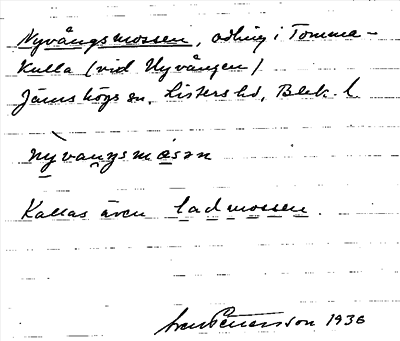 Nyvångsmossen, odling i Tomma-
kulla (vid Nyvången)
Jämshögs sn, Listers hd, Blek. l
nỳvaŋsmåsən
Kallas även ladmossen.
Sven Pettersson 1936